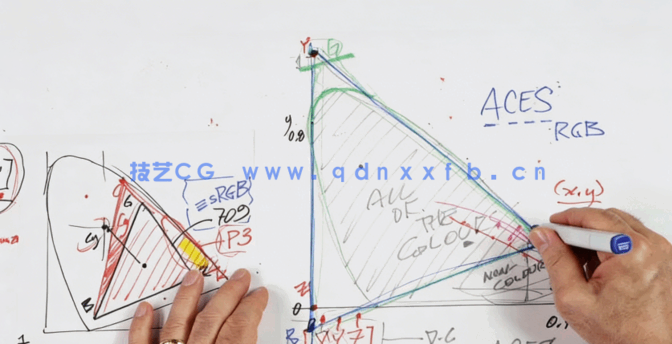 Y
1
y
0.8
ACES
RGB
技艺CG www.qdnxxfb.cn
≡sRGB
709
P3
G
B
ALL
OF
THE
COLOUR
(x,y)
NON
COLOUR
Z
0
B
1